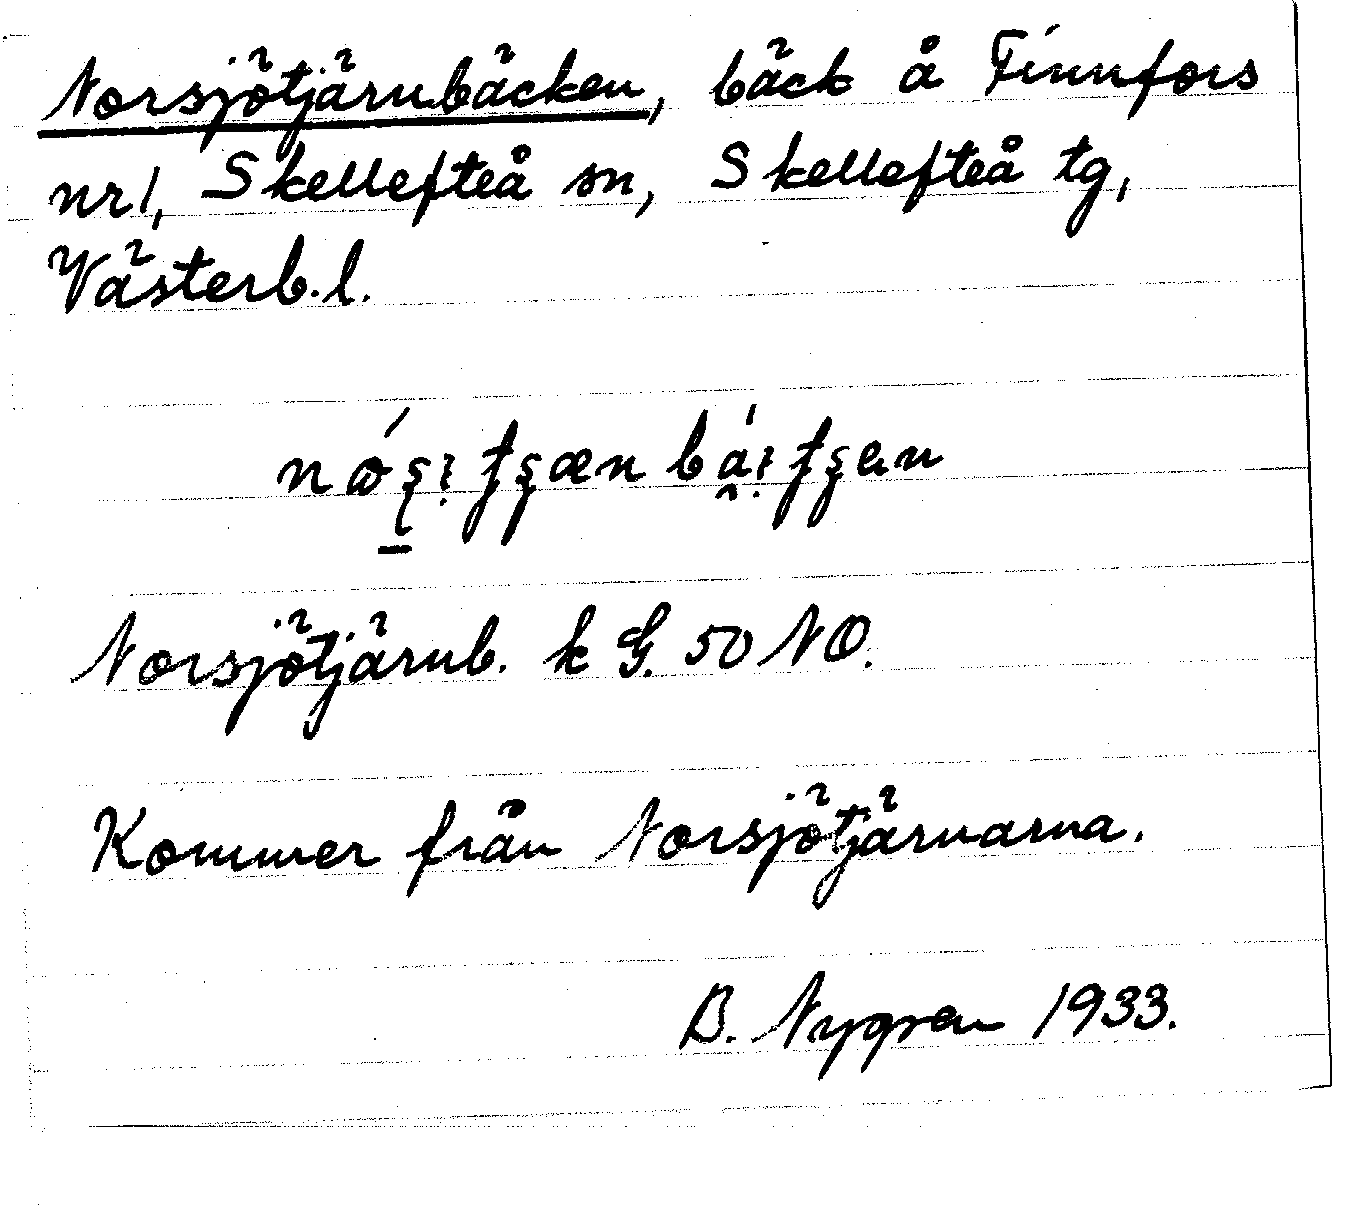 Norsjötjärnbäcken, bäck å Finnfors
nr 1, Skellefteå sn, Skellefteå tg,
Västerb. l.
Norsjötjärnb. k G. 50 NO.
Kommer från Norsjötjärnarna.
B. Nygren 1933.